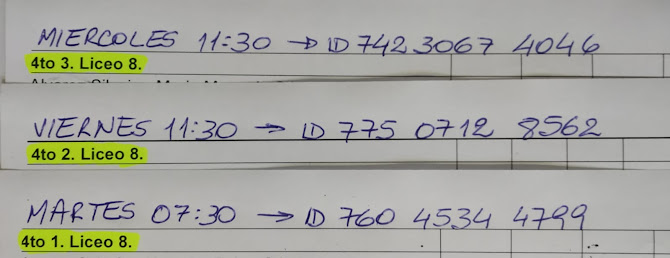 MIERCOLES 11:30 → ID 742 3067 4046
4to 3. Liceo 8.
VIERNES 11:30 → ID 775 0712 8562
4to 2. Liceo 8.
MARTES 07:30 → ID 760 4534 4799
4to 1. Liceo 8.